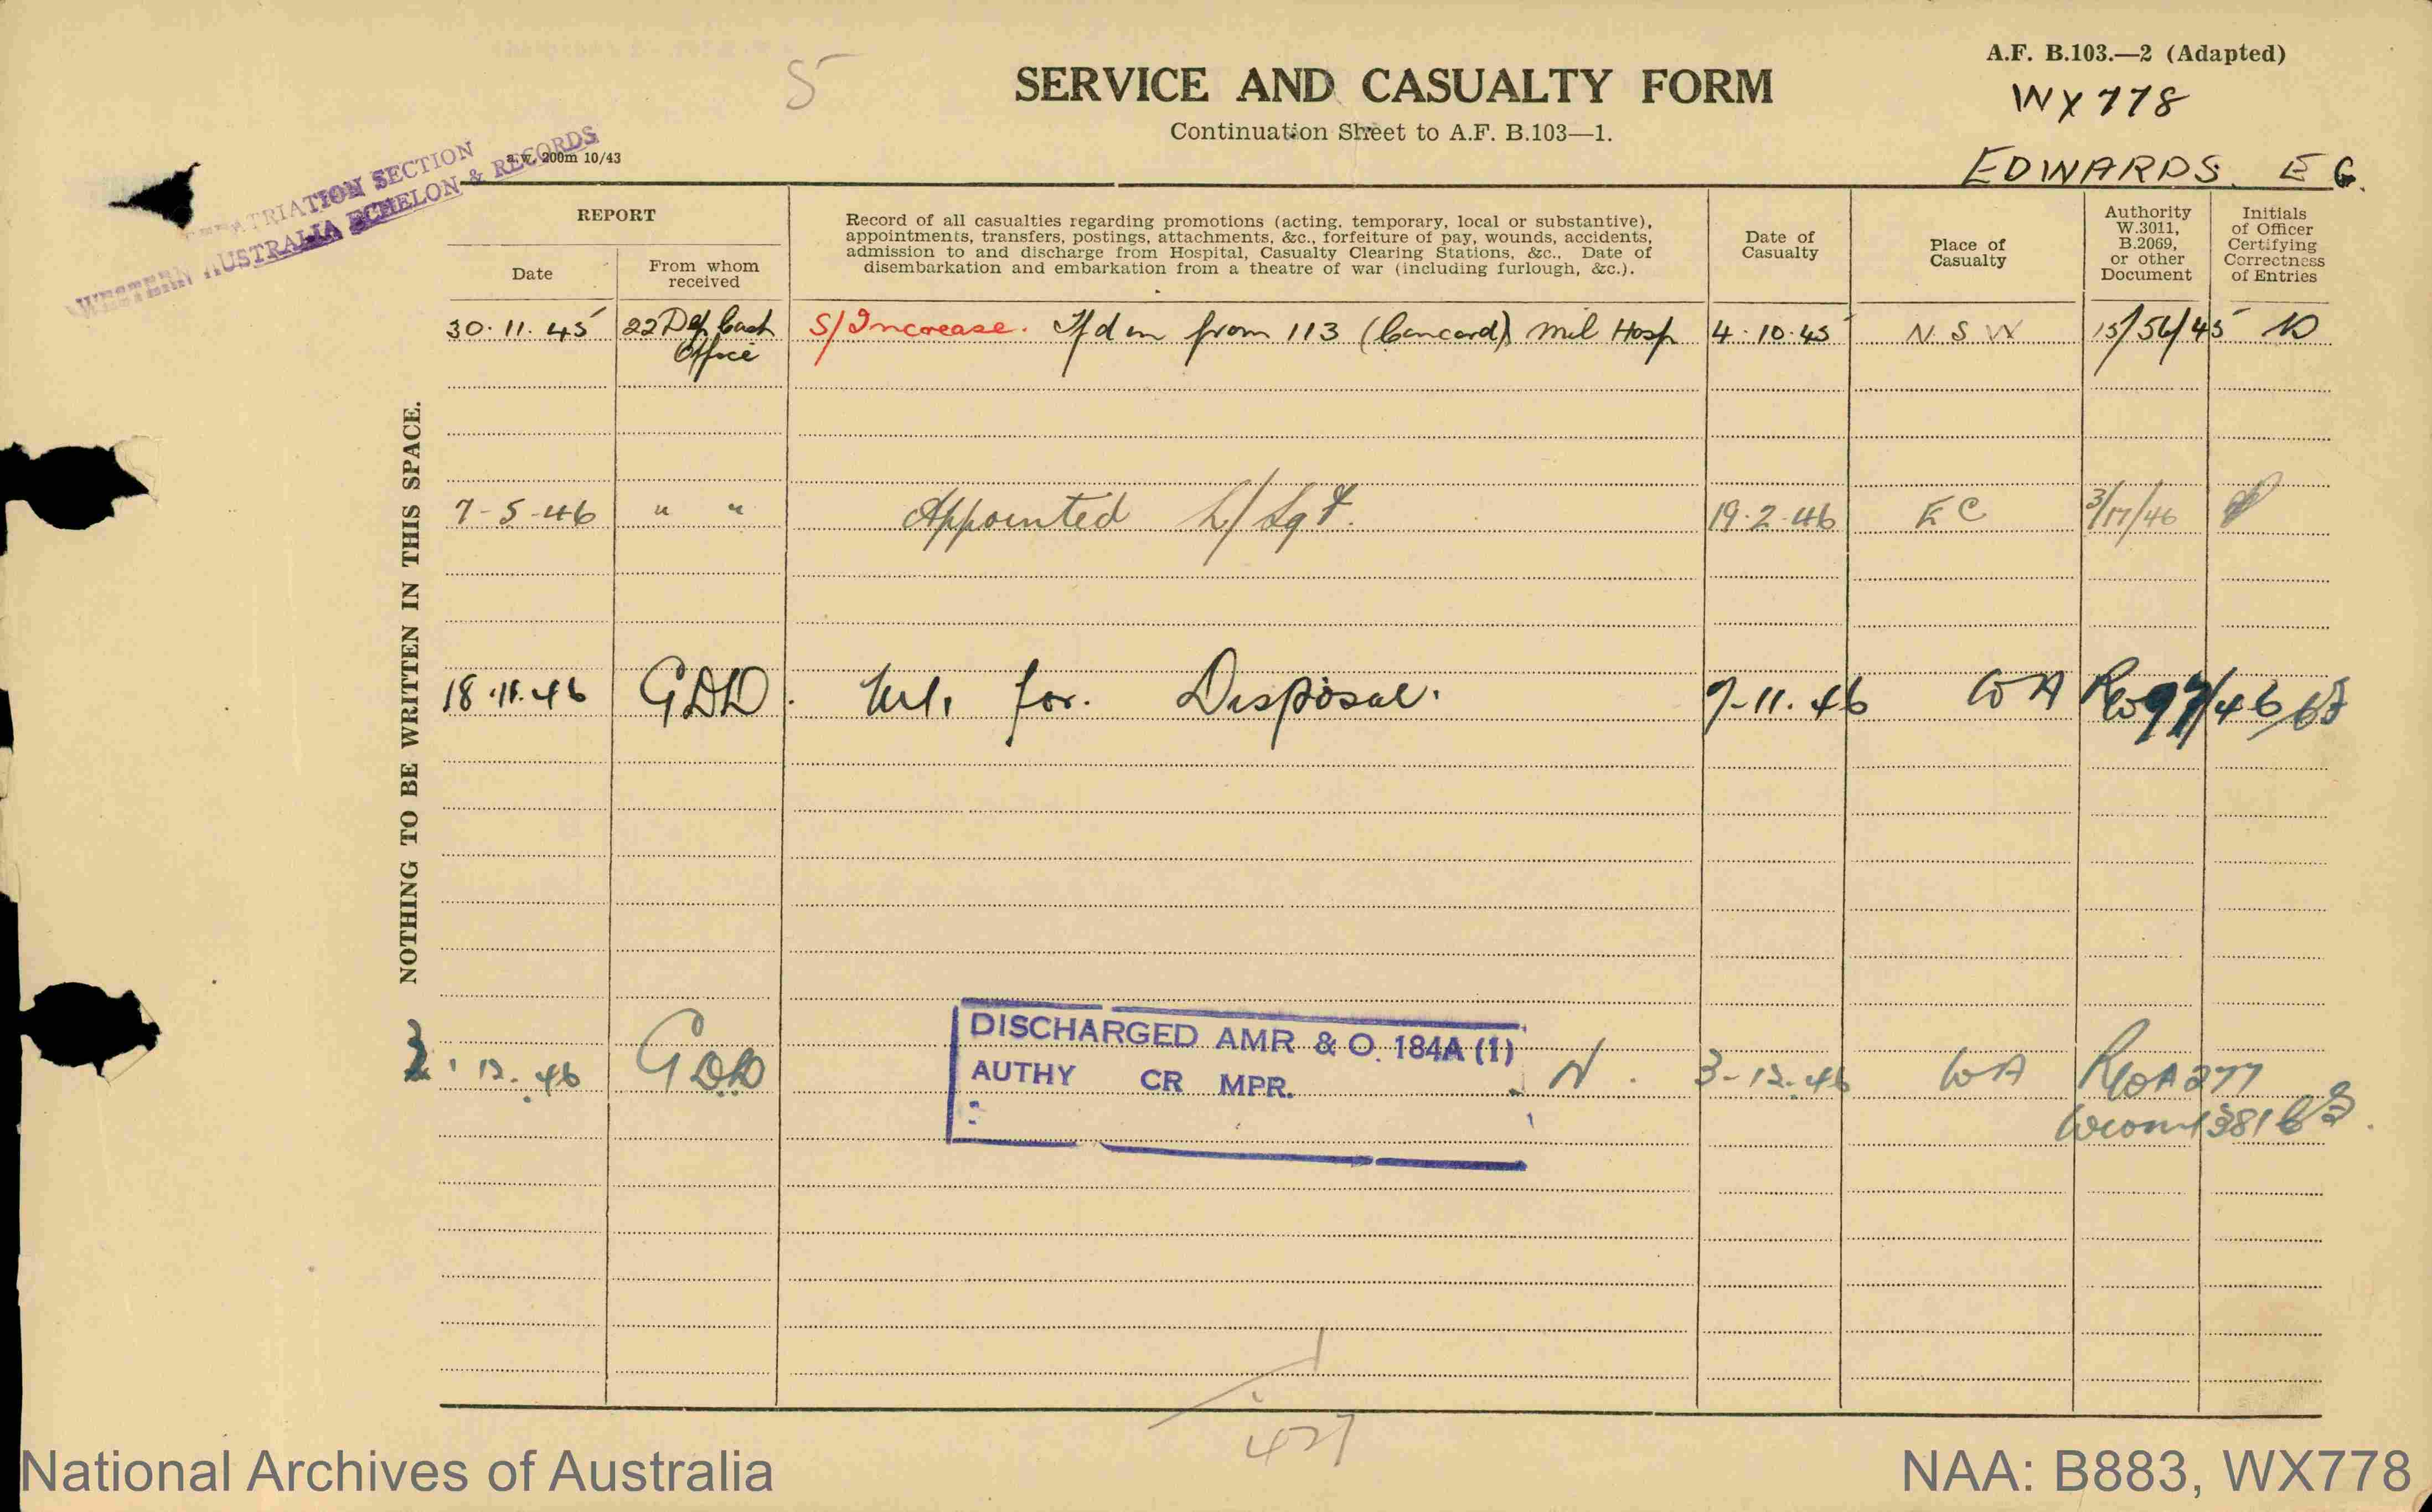 5
SERVICE AND CASUALTY FORM
Continuation Sheet to A.F. B.103—1.
A.F. B.103.—2 (Adapted)
WX778
EDWARDS. E G.
a.w. 200m 10/43
TRIATION SECTION
WESTERN AUSTRALIA ECHELON & RECORDS
NOTHING TO BE WRITTEN IN THIS SPACE.
REPORT
Date
From whom
received
Record of all casualties regarding promotions (acting, temporary, local or substantive),
appointments, transfers, postings, attachments, &c., forfeiture of pay, wounds, accidents,
admission to and discharge from Hospital, Casualty Clearing Stations, &c., Date of
disembarkation and embarkation from a theatre of war (including furlough, &c.).
Date of
Casualty
Place of
Casualty
Authority
W.3011,
B.2069,
or other
Document
Initials
of Officer
Certifying
Correctness
of Entries
30.11.45 22 Dep Cash S/Increase. Tfd in from 113 (Concord) Mil Hosp 4.10.45 N.S.W 15/56/45
Office
7-5-46 " " Appointed L/Sgt. 19.2.46 3/17/46
18.11.46 GDD. for. Disposal. 7-11.46 WA
12.46 GDD DISCHARGED AMR & O. 184A (1) 3-12-46 WA
AUTHY CR MPR. N.
427
National Archives of Australia
NAA: B883, WX778